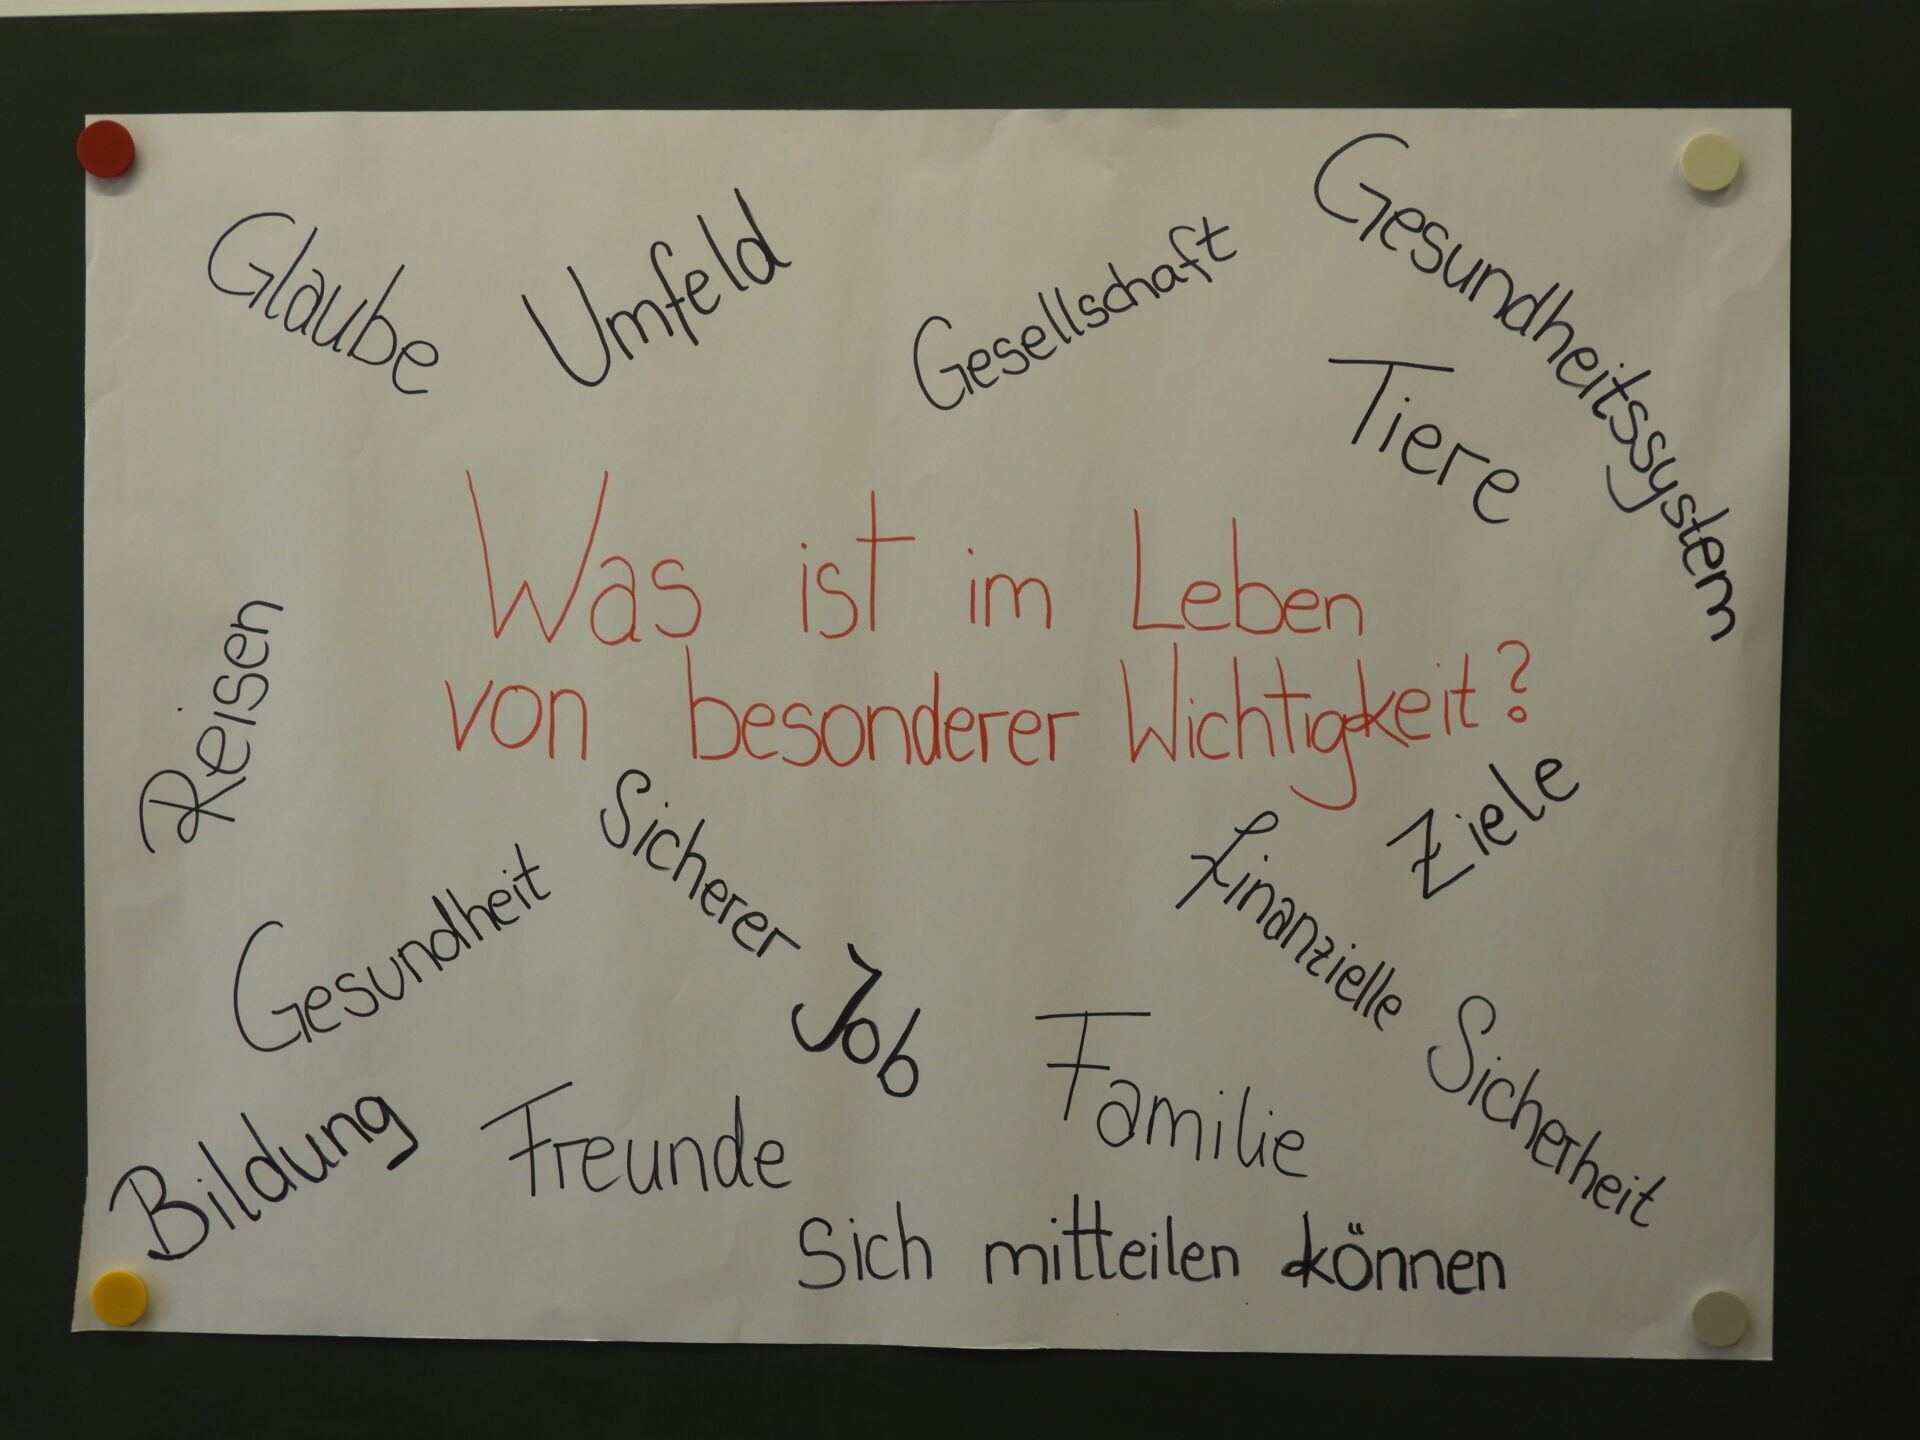 Glaube
Umfeld
Gesellschaft
Gesundheitssystem
Tiere
Was ist im Leben
von besonderer Wichtigkeit?
Reisen
Sicherer Job
Ziele
Finanzielle Sicherheit
Gesundheit
Familie
Bildung
Freunde
Sich mitteilen können